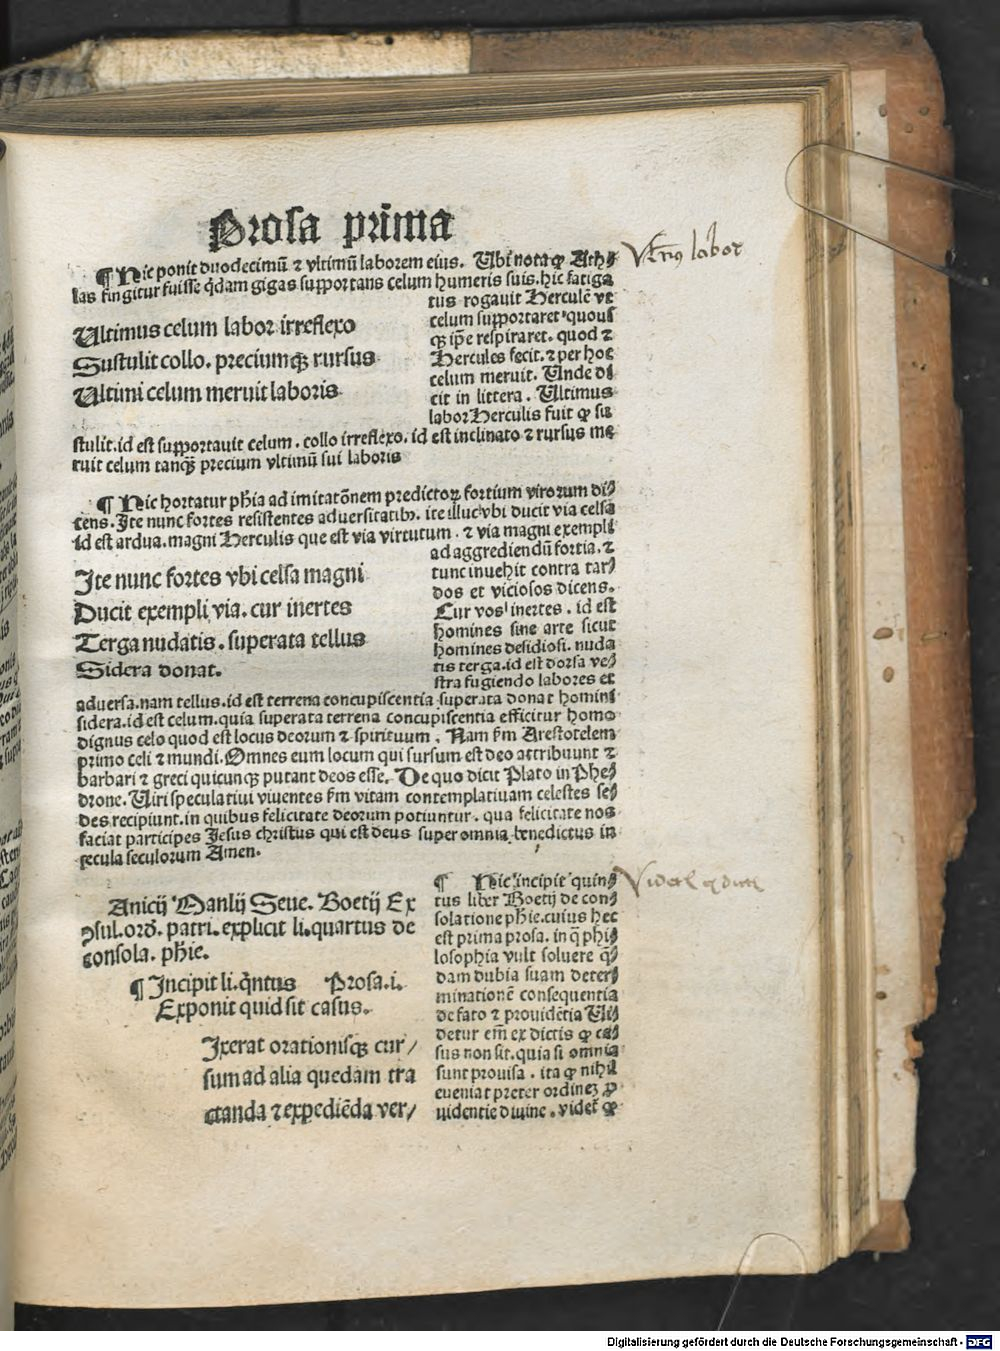 Prosa prima
¶ Hic ponit duodecimũ ⁊ vltimũ laborem eius. Ubi nota ꝙ Ath⸗
las fingitur fuisse q̃dam gigas supportans celum humeris suis. hic fatiga
tus rogauit Herculẽ vt
celum supportaret quous
qꝫ ip̃e respiraret. quod ⁊
Hercules fecit. ⁊ per hoc
celum meruit. Unde di
cit in littera. Ultimus
labor Herculis fuit ꝙ su
Ultimus celum labor irreflexo
Sustulit collo. preciumqꝫ rursus
Ultimi celum meruit laboris
stulit. id est supportauit celum. collo irreflexo. id est inclinato ⁊ rursus me
ruit celum tanqꝫ̃ precium vltimũ sui laboris
Vltimꝰ labor
¶ Hic hortatur ph̃ia ad imitatõnem predictoꝝ fortium virorum di⸗
cens. Ite nunc fortes resistentes aduersitatibꝫ. ite illuc vbi ducit via celsa
id est ardua. magni Herculis que est via virtutum. ⁊ via magni exempli
ad aggrediendũ fortia. ⁊
tunc inuehit contra tar⸗
dos et viciosos dicens.
Cur vos inertes. id est
homines sine arte sicut
homines desidiosi. nuda
tis terga. id est dorsa ve⸗
stra fugiendo labores et
Ite nunc fortes vbi celsa magni
Ducit exempli via. cur inertes
Terga nudatis. superata tellus
Sidera donat.
aduersa. nam tellus. id est terrena concupiscentia superata donat homini
sidera. id est celum. quia superata terrena concupiscentia efficitur homo
dignus celo quod est locus deorum ⁊ spirituum. Nam f̃m Arestotelem
primo celi ⁊ mundi. Omnes eum locum qui sursum est deo attribuunt ⁊
barbari ⁊ greci quicunqꝫ putant deos esse. De quo dicit Plato in Phe⸗
drone. Uiri speculatiui viuentes f̃m vitam contemplatiuam celestes se⸗
des recipiunt. in quibus felicitate deorum potiuntur. qua felicitate nos
faciat participes Jesus christus qui est deus super omnia benedictus in
secula seculorum Amen.
Anicij Manlij Seue. Boetij Ex
ꝯsul. ord̃. patri. explicit li. quartus de
consola. ph̃ie.
¶ Incipit li. q̃ntus Prosa. i.
Exponit quid sit casus.
Ixerat orationisqꝫ cur/
sum ad alia quedam tra
ctanda ⁊ expediẽda ver/
¶ Hic incipit quin⸗
tus liber Boetij de con⸗
solatione ph̃ie. cuius hec
est prima prosa. in q̃ phi⸗
losophia vult soluere q̃⸗
dam dubia suam deter⸗
minationẽ consequentia
de fato ⁊ prouidẽtia Ui⸗
detur em̃ ex dictis ꝙ ca⸗
sus non sit. quia si omnia
sunt prouisa. ita ꝙ nihil
eueniat preter ordinẽ ꝓ
uidentie diuine. videt̃ ꝙ
Digitalisierung gefördert durch die Deutsche Forschungsgemeinschaft - DFG